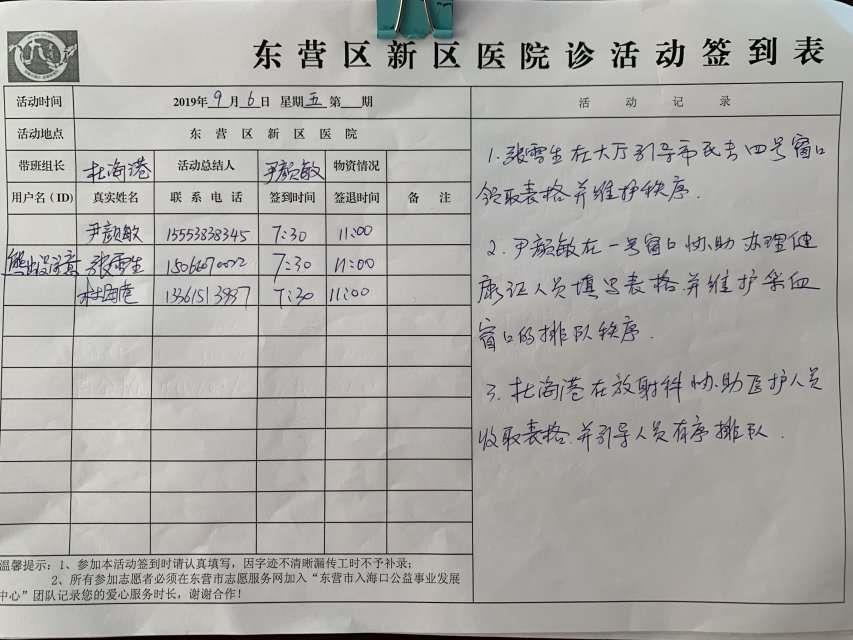 东营区新区医院诊活动签到表
活动时间 2019年9月6日 星期五 第 期 活动记录
活动地点 东营区新区医院
带班组长 杜海港 活动总结人 尹颜敏 物资情况
用户名(ID) 真实姓名 联系电话 签到时间 签退时间 备注
尹颜敏 15553838345 7:30 11:00
熊出没注意 张雪生 7:30 11:00
杜海港 7:30 11:00
1. 张雪生在大厅引导市民去四号窗口
领取表格并维护秩序.
2. 尹颜敏在一号窗口协助办理健
康证人员填写表格.并维护采血
窗口的排队秩序.
3. 杜海港在放射科协助医护人员
收取表格.并引导人员有序排队.
温馨提示：1、参加本活动签到时请认真填写，因字迹不清晰漏传工时不予补录；
2、所有参加志愿者必须在东营市志愿服务网加入“东营市入海口公益事业发展
中心”团队记录您的爱心服务时长，谢谢合作！